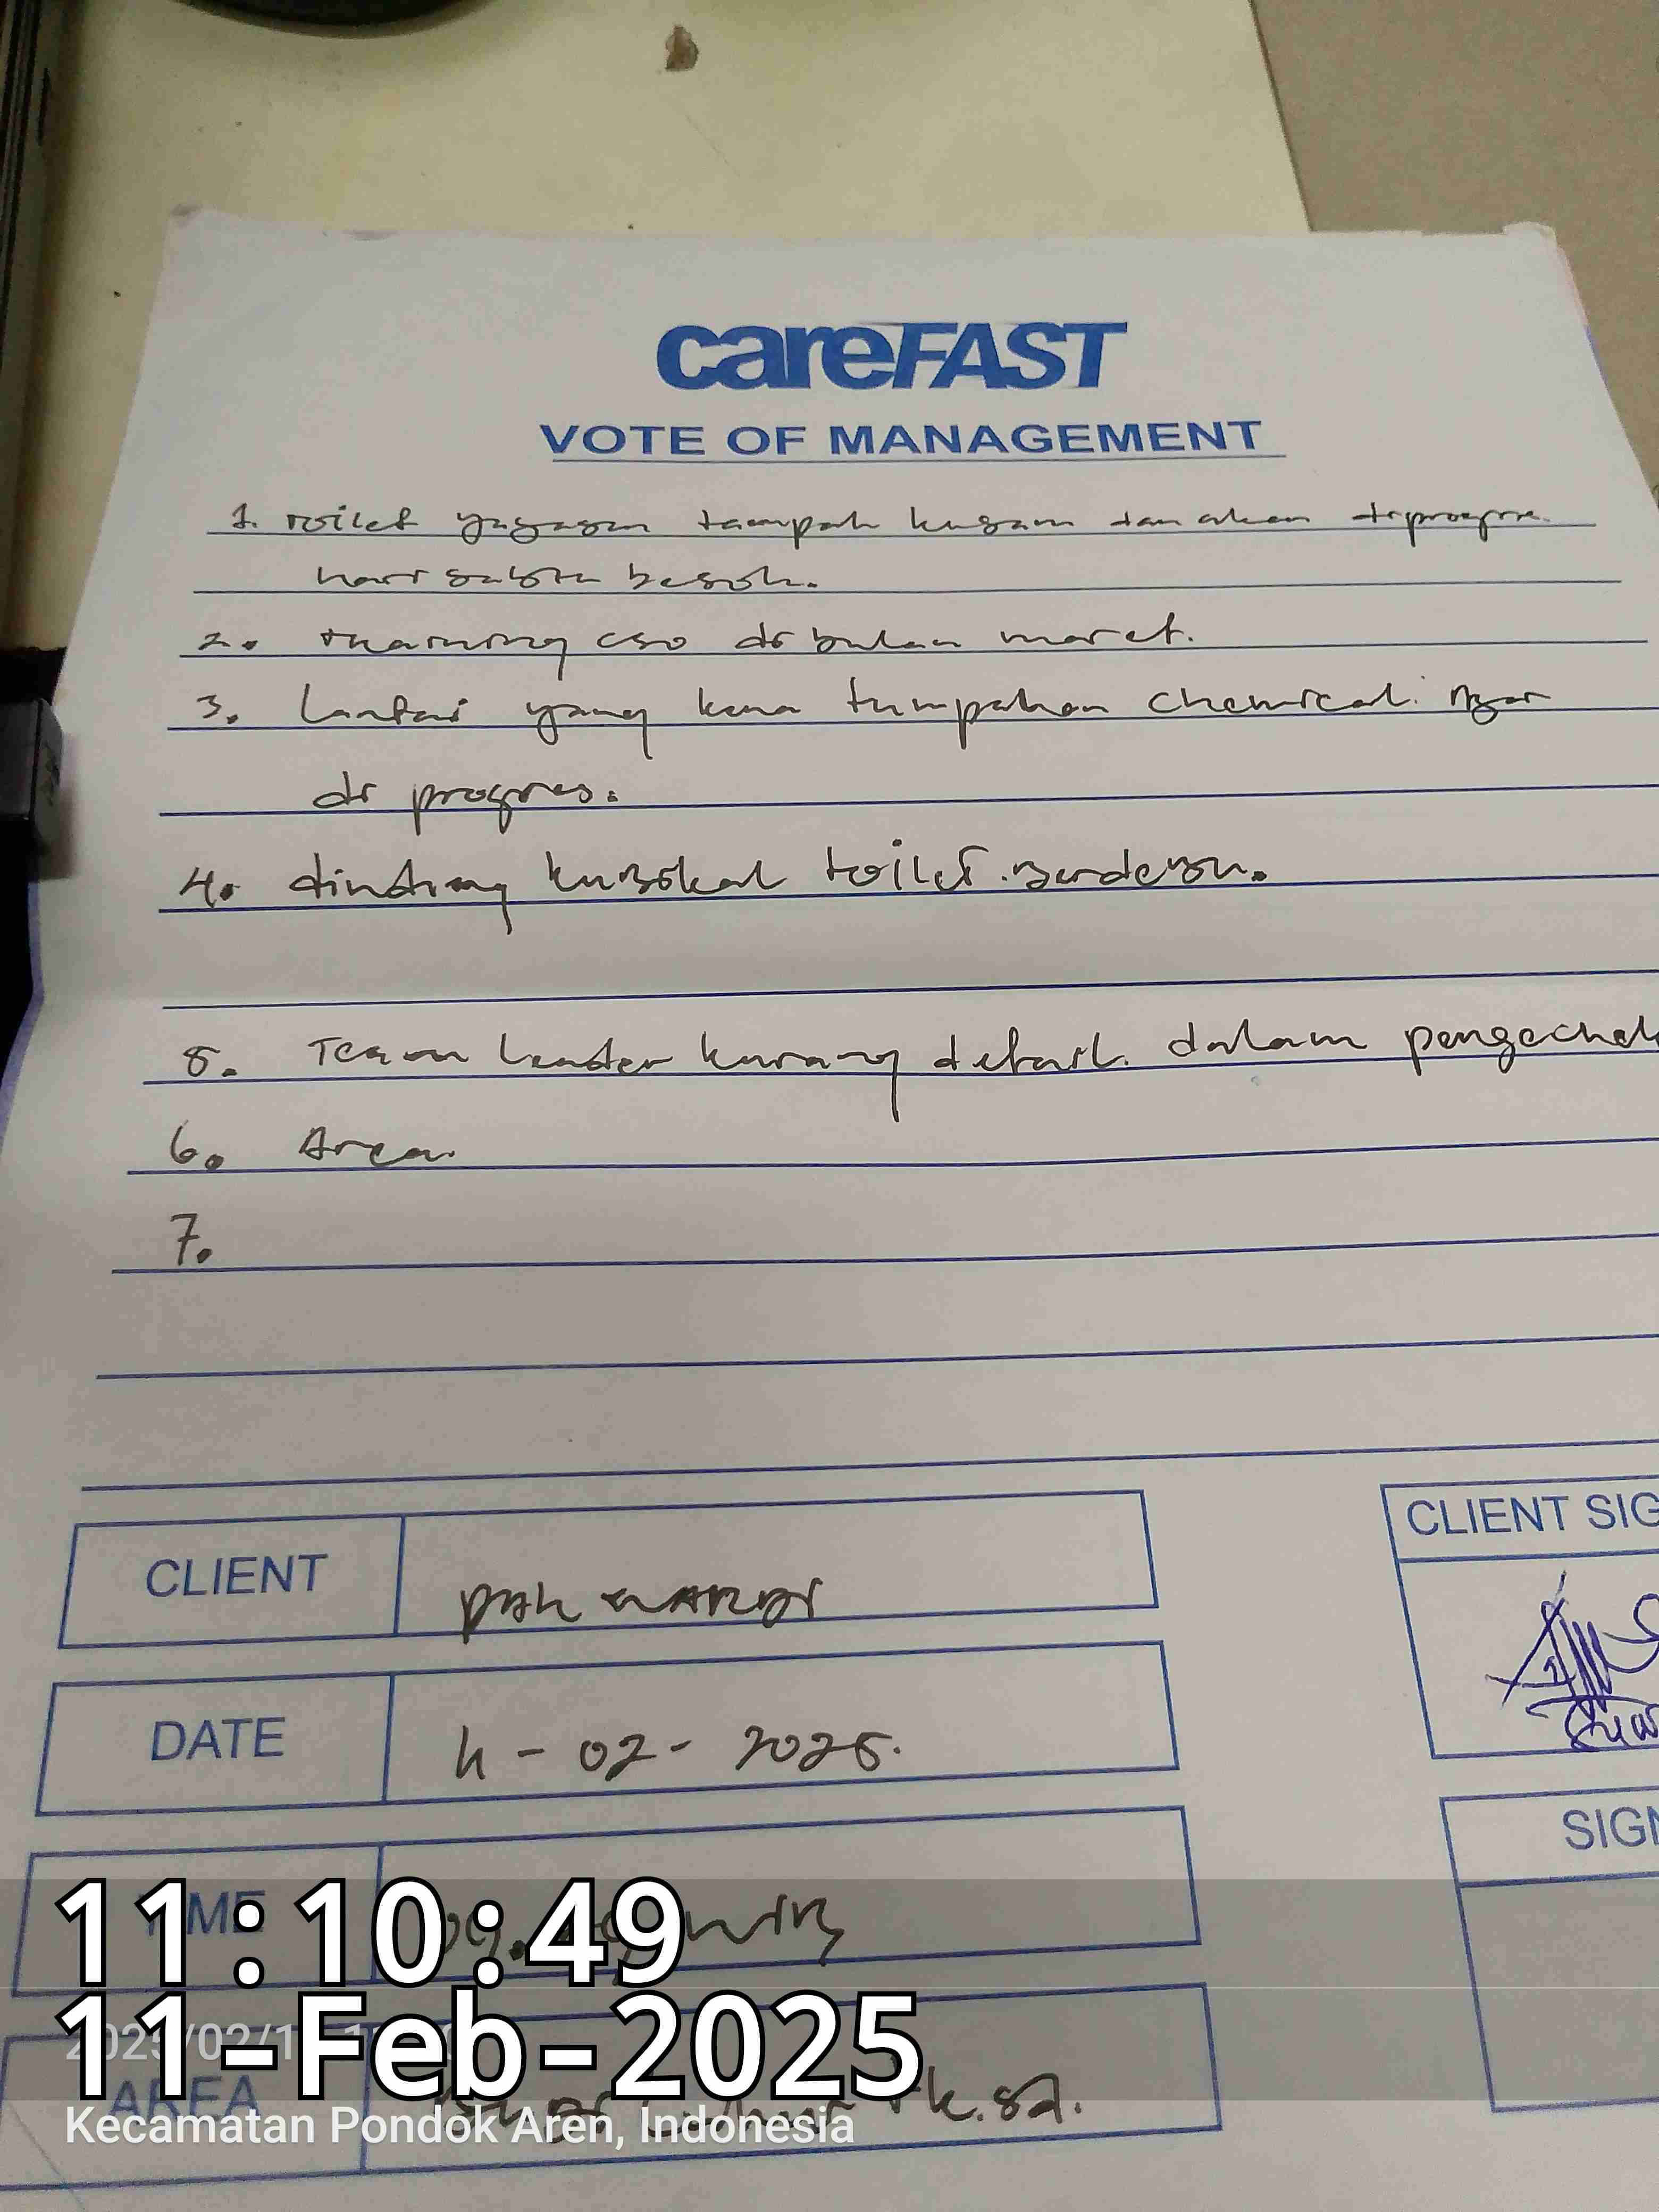 careFAST
VOTE OF MANAGEMENT
1. Toilet yayasan tampak kusam dan akan diprogres
hari sabtu besok.
2. training cso di bulan maret.
3. Lantai yang kena tumpahan chemical. Agar
di progres.
4. dinding kubikal toilet berdebu.
5. Team Leader kurang detail. dalam pengechek
6. Area.
7.
CLIENT
pak
DATE
11-02-2025.
CLIENT SIG
SIGN
11:10:49
11-Feb-2025
AREA
tk.sd.
Kecamatan Pondok Aren, Indonesia